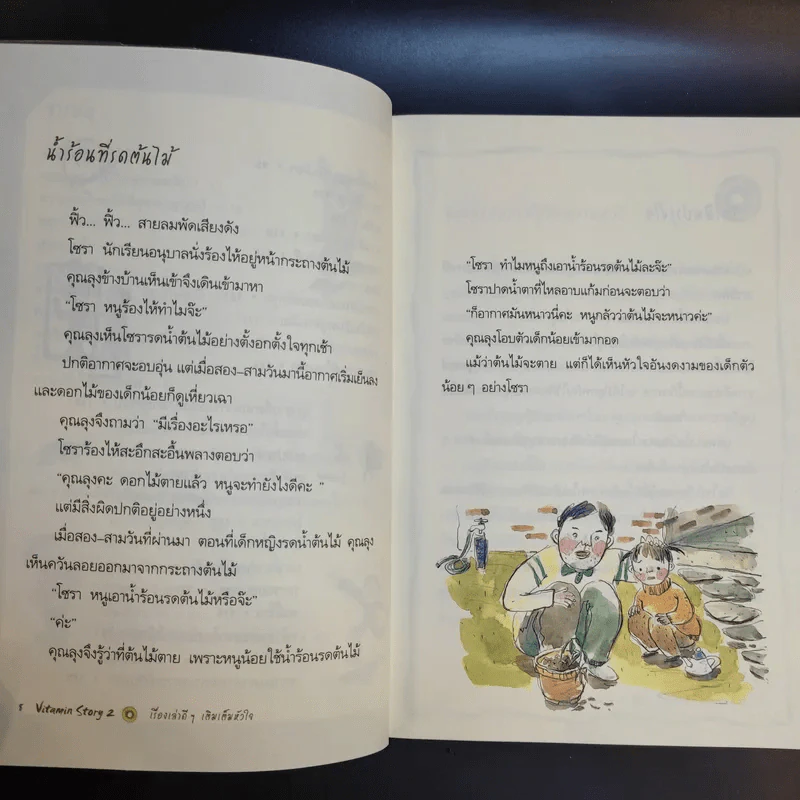 น้ำร้อนที่รดต้นไม้
ฟิ้ว... ฟิ้ว... สายลมพัดเสียงดัง
โซรา นักเรียนอนุบาลนั่งร้องไห้อยู่หน้ากระถางต้นไม้
คุณลุงข้างบ้านเห็นเข้าจึงเดินเข้ามาหา
"โซรา หนูร้องไห้ทำไมจ๊ะ"
คุณลุงเห็นโซรารดน้ำต้นไม้อย่างตั้งอกตั้งใจทุกเช้า
ปกติอากาศจะอบอุ่น แต่เมื่อสอง-สามวันมานี้อากาศเริ่มเย็นลง
และดอกไม้ของเด็กน้อยก็ดูเหี่ยวเฉา
คุณลุงจึงถามว่า "มีเรื่องอะไรเหรอ"
โซราร้องไห้สะอึกสะอื้นพลางตอบว่า
"คุณลุงคะ ดอกไม้ตายแล้ว หนูจะทำยังไงดีคะ "
แต่มีสิ่งผิดปกติอยู่อย่างหนึ่ง
เมื่อสอง-สามวันที่ผ่านมา ตอนที่เด็กหญิงรดน้ำต้นไม้ คุณลุง
เห็นควันลอยออกมาจากกระถางต้นไม้
"โซรา หนูเอาน้ำร้อนรดต้นไม้หรือจ๊ะ"
"ค่ะ"
คุณลุงจึงรู้ว่าที่ต้นไม้ตาย เพราะหนูน้อยใช้น้ำร้อนรดต้นไม้
Vitamin Story 2 เรื่องเล่าดี ๆ เติมเต็มหัวใจ
"โซรา ทำไมหนูถึงเอาน้ำร้อนรดต้นไม้ละจ๊ะ"
โซราปาดน้ำตาที่ไหลอาบแก้มก่อนจะตอบว่า
"ก็อากาศมันหนาวนี่คะ หนูกลัวว่าต้นไม้จะหนาวค่ะ"
คุณลุงโอบตัวเด็กน้อยเข้ามากอด
แม้ว่าต้นไม้จะตาย แต่ก็ได้เห็นหัวใจอันงดงามของเด็กตัว
น้อย ๆ อย่างโซรา